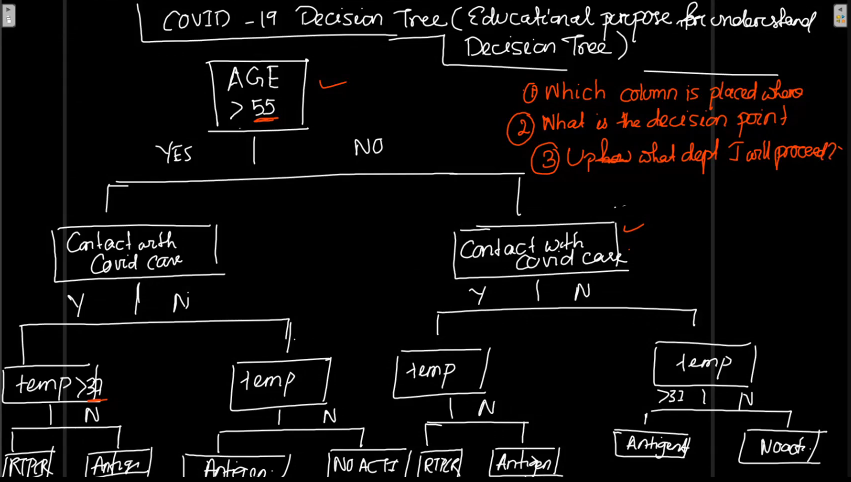 COVID -19 Decision Tree (Educational purpose for understand
Decision Tree)
AGE
> 55
① Which column is placed where
② What is the decision point
③ Upto what dept I will proceed?
YES
NO
Contact with
Covid case
Contact with
Covid case
Y N
Y N
temp >37
temp
temp
temp
N
N
N
>37 N
RTPCR
Antigen
Antigen
NO ACTI
RTPCR
Antigen
Antigen